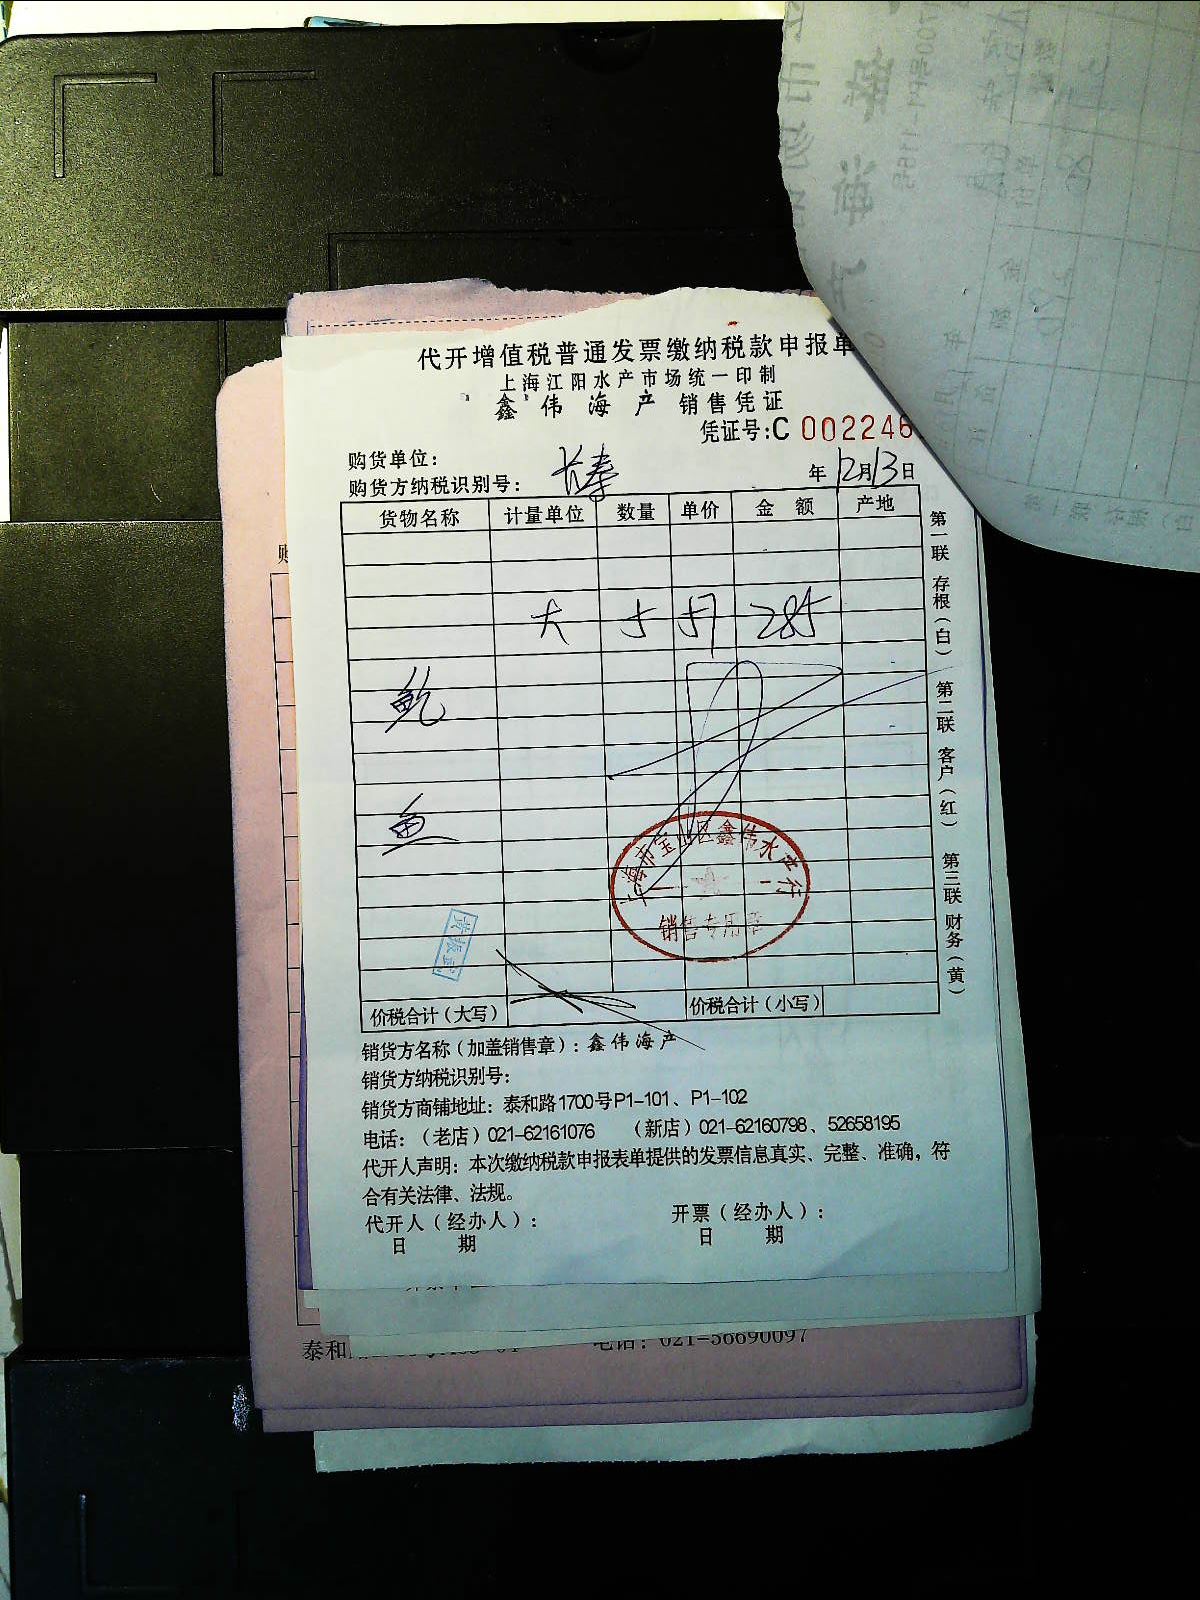 代开增值税普通发票缴纳税款申报单
上海江阳水产市场统一印制
鑫伟海产 销售凭证
凭证号:C 002246
购货单位：
购货方纳税识别号： 长寿 年12月13日
货物名称 计量单位 数量 单价 金额 产地
大 5 57 285
鲍
鱼
第一联 存根（白） 第二联 客户（红） 第三联 财务（黄）
上海市宝山区鑫伟水产行
销售专用章
价税合计（大写） 价税合计（小写）
销货方名称（加盖销售章）：鑫伟海产
销货方纳税识别号：
销货方商铺地址：泰和路1700号P1-101、P1-102
电话：（老店）021-62161076 （新店）021-62160798、52658195
代开人声明：本次缴纳税款申报表单提供的发票信息真实、完整、准确，符
合有关法律、法规。
代开人（经办人）： 开票（经办人）：
日 期 日 期
泰和 电话：021-56690097